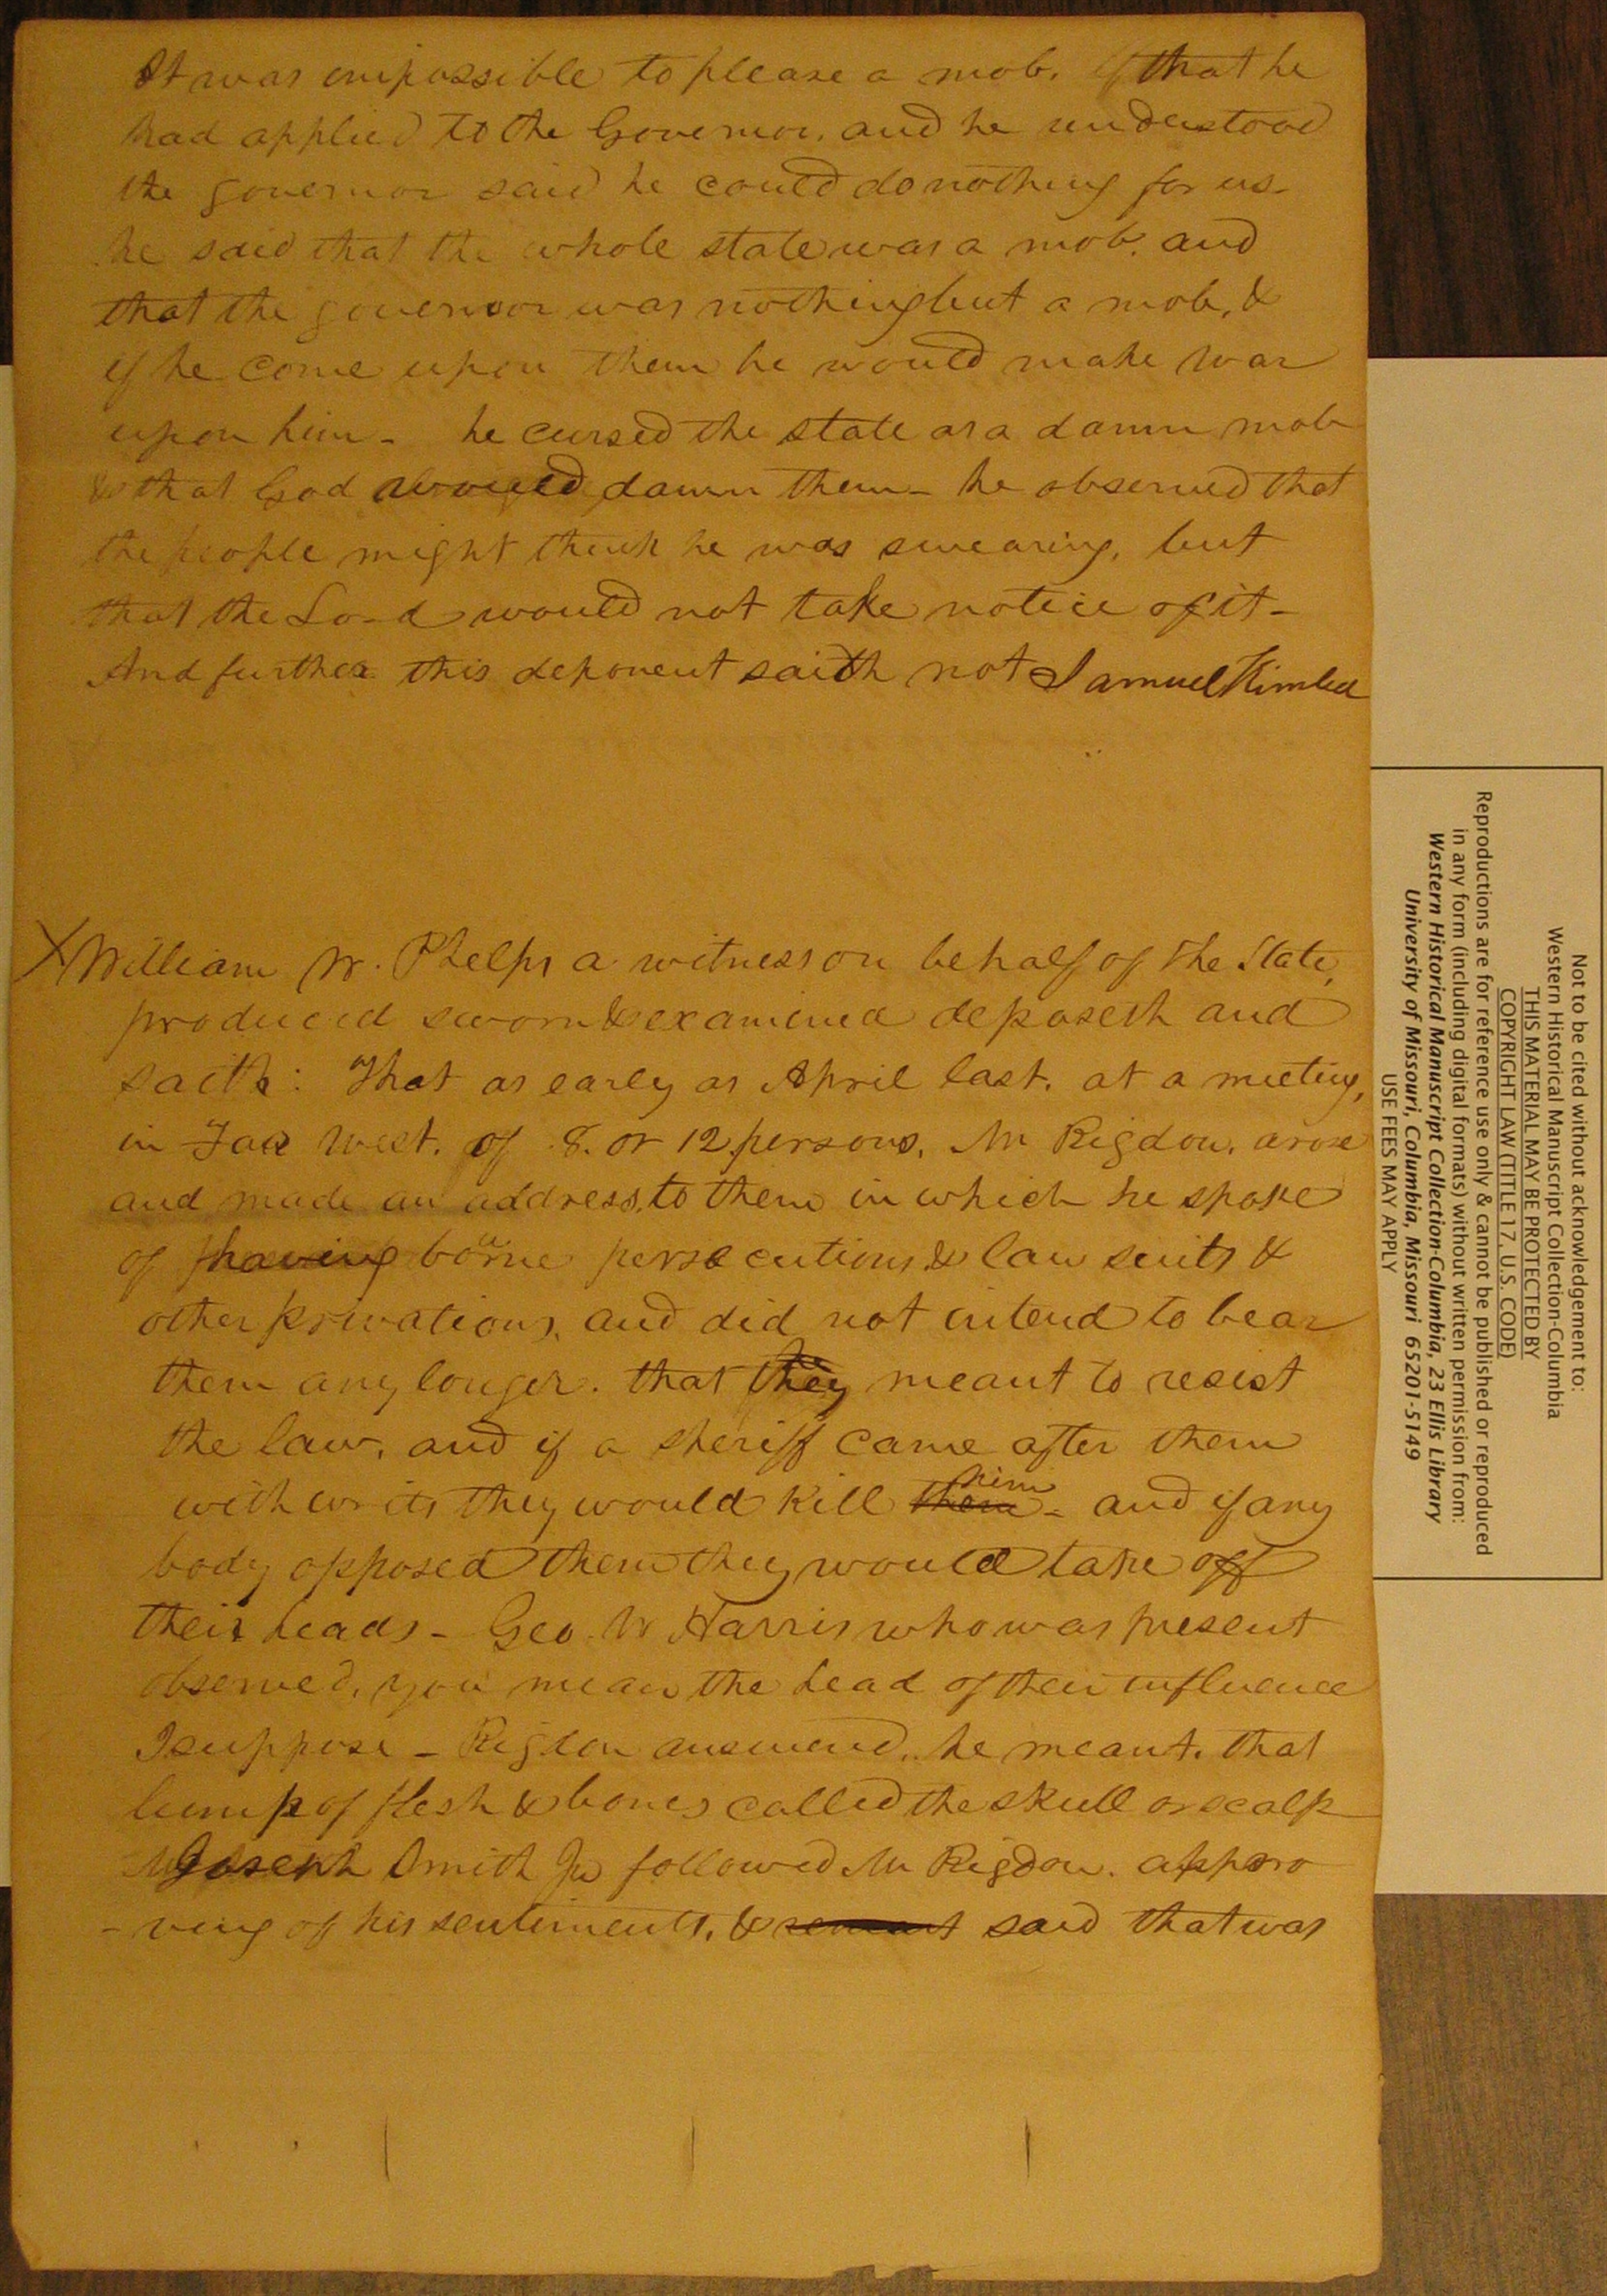 It was impossible to please a mob. that he
had applied to the Governor, and he understood
the governor said he could do nothing for us-
he said that the whole state was a mob. and
that the governor was nothing but a mob, &
if he come upon them he would make war
upon him - he cursed the state as a damn mob
& that God would damn them - he observed that
the people might think he was swearing, but
that the Lord would not take notice of it -
And further this deponent saith not Samuel Kimbel
X William W. Phelps a witness on behalf of the State,
produced sworn & examined deposeth and
saith: That as early as April last. at a meeting,
in Far West. of 8. or 12 persons, Mr Rigdon, arose
and made an address, to them in which he spoke
of having borne persecutions & law suits &
other privations, and did not intend to bear
them any longer. that they meant to resist
the law, and if a sheriff came after them
with writs they would kill them him - and if any
body opposed them they would take off
their heads - Geo. W Harris who was present
observed, you mean the head of their influence
I suppose - Rigdon answered, he meant, that
lump of flesh & bones called the skull or scalp
Joseph Smith Jr followed Mr Rigdon. appro
- ving of his sentiments, & said that was
Not to be cited without acknowledgement to:
Western Historical Manuscript Collection-Columbia
THIS MATERIAL MAY BE PROTECTED BY
COPYRIGHT LAW (TITLE 17, U.S. CODE)
Reproductions are for reference use only & cannot be published or reproduced
in any form (including digital formats) without written permission from:
Western Historical Manuscript Collection-Columbia, 23 Ellis Library
University of Missouri, Columbia, Missouri 65201-5149
USE FEES MAY APPLY